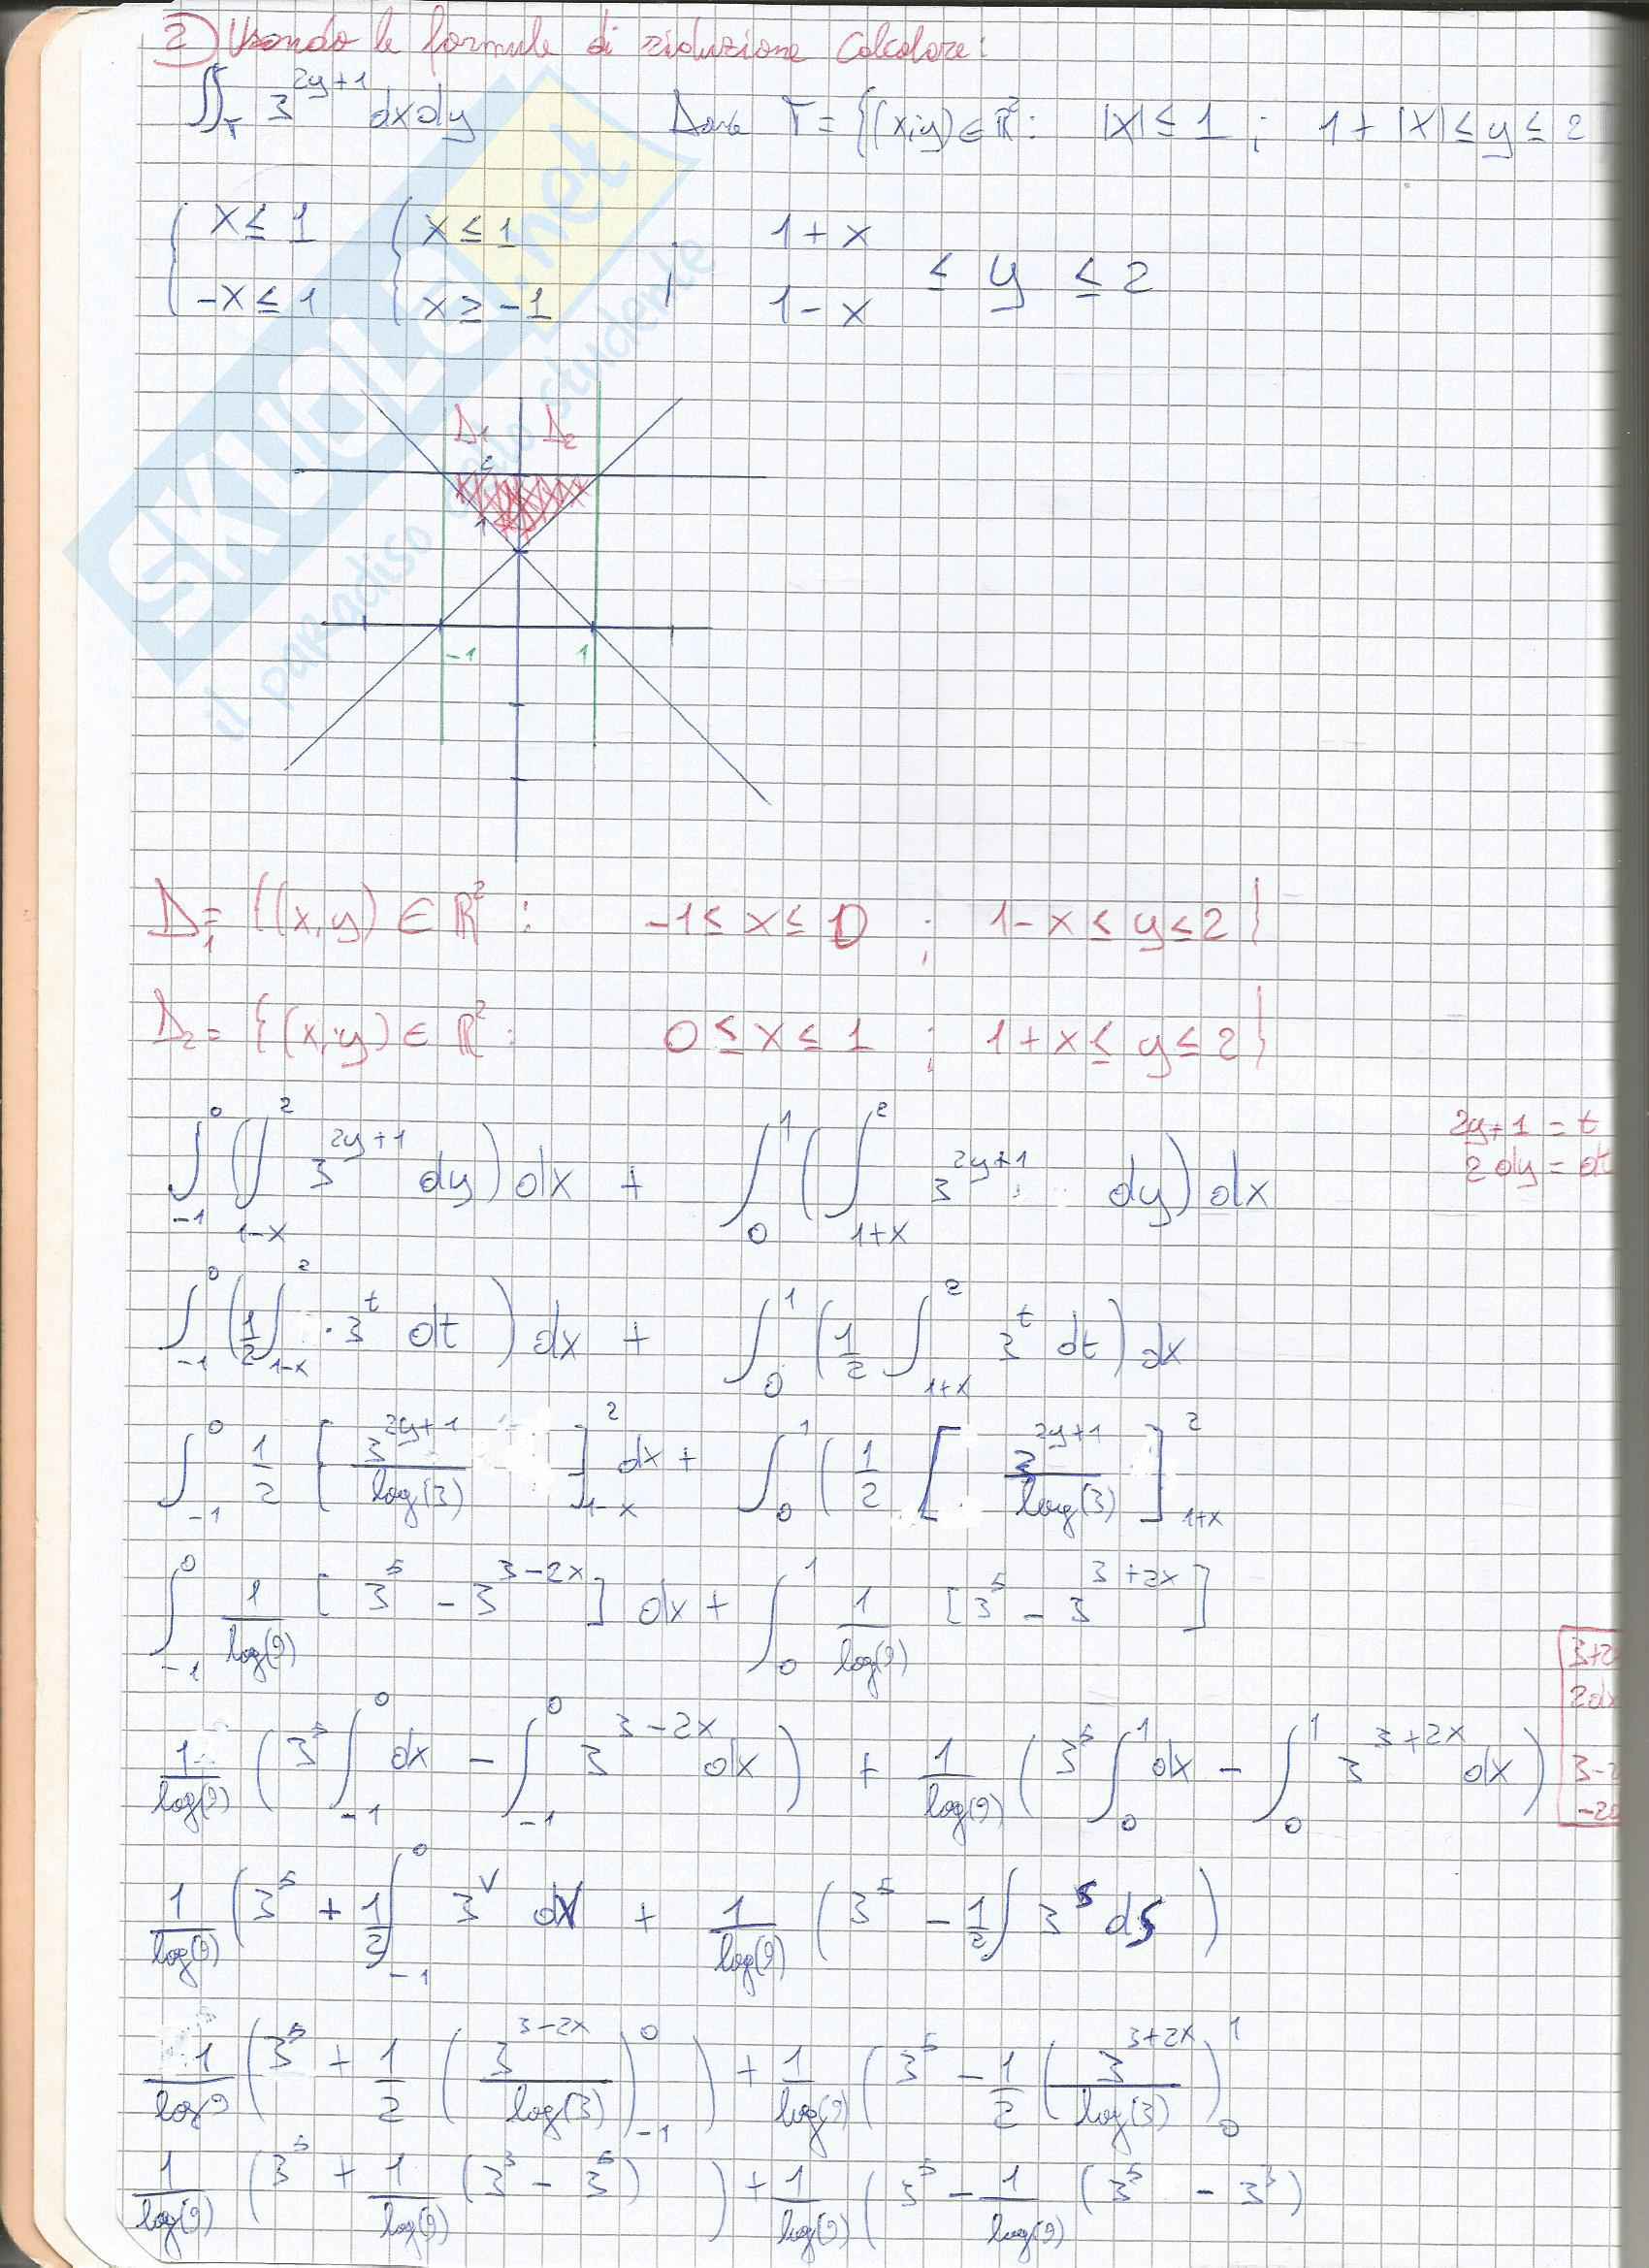 2) Usando le formule di riduzione calcolare:
∬_T 3^(2y+1) dxdy   Dove T = {(x,y) ∈ ℝ²: |x| ≤ 1 ; 1+|x| ≤ y ≤ 2
{ x ≤ 1   { x ≤ 1   ;   1+x
≤ y ≤ 2
{ -x ≤ 1   { x ≥ -1   1-x
SKUOLA.net
il paradiso dello studente
D₁ D₂
2
1
-1 1
D₁ = {(x,y) ∈ ℝ² : -1 ≤ x ≤ 0 ; 1-x ≤ y ≤ 2}
D₂ = {(x,y) ∈ ℝ² : 0 ≤ x ≤ 1 ; 1+x ≤ y ≤ 2}
∫_{-1}^{0} (∫_{1-x}^{2} 3^(2y+1) dy) dx + ∫_{0}^{1} (∫_{1+x}^{2} 3^(2y+1) dy) dx
2y+1 = t
2 dy = dt
∫_{-1}^{0} (1/2 ∫_{1-x}^{2} · 3^t dt) dx + ∫_{0}^{1} (1/2 ∫_{1+x}^{2} 3^t dt) dx
∫_{-1}^{0} 1/2 [3^(2y+1)/log(3)]_{1-x}^{2} dx + ∫_{0}^{1} (1/2 [3^(2y+1)/log(3)]_{1+x}^{2}
∫_{-1}^{0} 1/log(9) [3^5 - 3^(3-2x)] dx + ∫_{0}^{1} 1/log(9) [3^5 - 3^(3+2x)]
1/log(9) (3^5 ∫_{-1}^{0} dx - ∫_{-1}^{0} 3^(3-2x) dx) + 1/log(9) (3^5 ∫_{0}^{1} dx - ∫_{0}^{1} 3^(3+2x) dx)
3+2
2dx
3-2
1/log(9) (3^5 + 1/2 ∫_{-1}^{0} 3^v dv + 1/log(9) (3^5 - 1/2 ∫ 3^s ds)
1/log9 (3^5 + 1/2 (3^(3-2x)/log(3))_{-1}^{0}) + 1/log(9) (3^5 - 1/2 (3^(3+2x)/log(3))_{0}^{1}
1/log(9) (3^5 + 1/log(9) (3^3 - 3^5)) + 1/log(9) (3^5 - 1/log(9) (3^5 - 3^3)